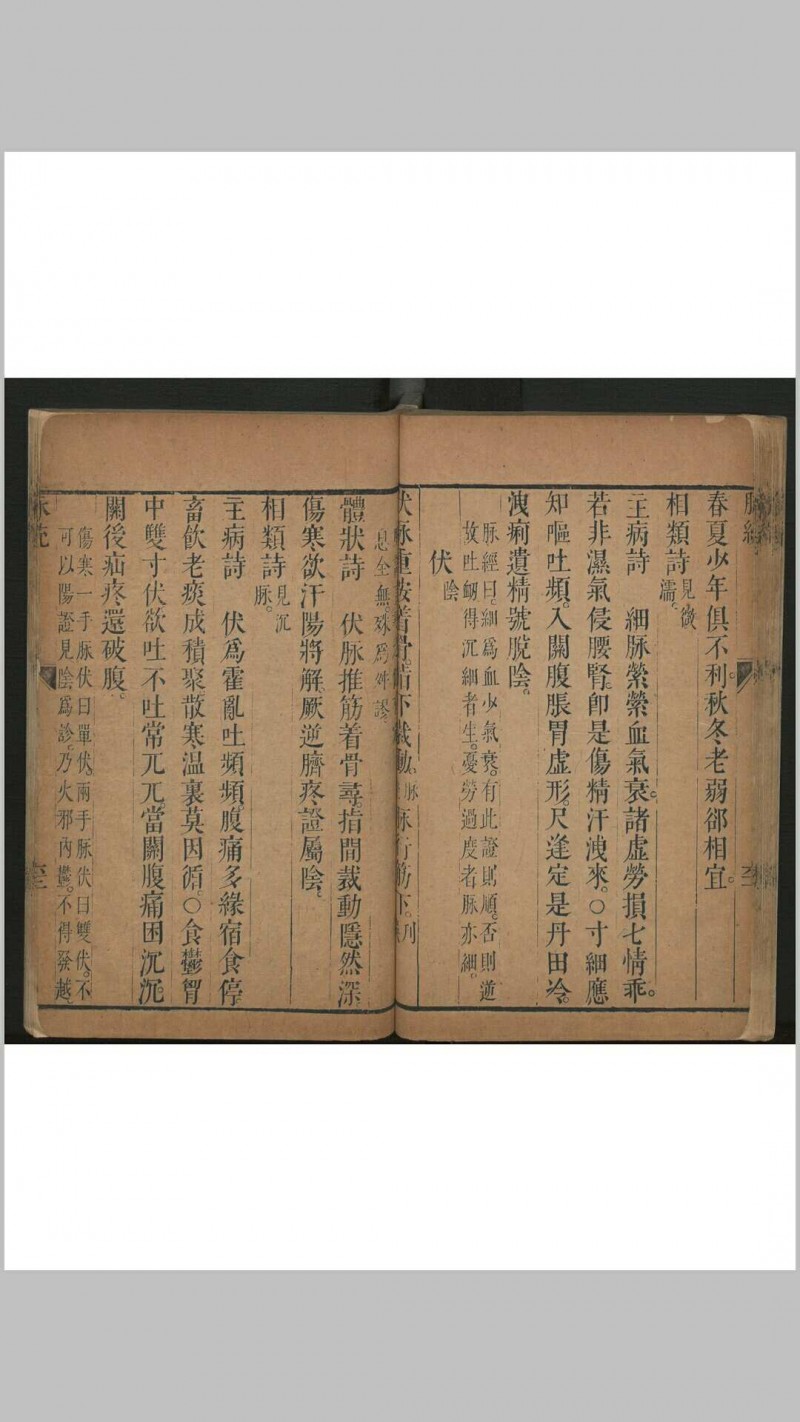 春夏少年俱不利。秋冬老弱郤相宜。
相類詩 見微濡。
主病詩 細脉縈縈血氣衰。諸虛勞損七情乖。
若非濕氣侵腰腎。卽是傷精汗洩來。○寸細應
知嘔吐頻。入關腹脹胃虛形。尺逢定是丹田冷。
洩痢遺精號脫陰。
脉經曰。細爲血少氣衰。有此證則順。否則逆
故吐衂得沉細者生。憂勞過度者脉亦細。
伏 陰
息全無。殊爲舛謬
體狀詩 伏脉推筋着骨尋。指間裁動隱然深。
傷寒欲汗陽將解。厥逆臍疼證屬陰。
相類詩 見沉脉。
主病詩 伏爲霍亂吐頻頻。腹痛多緣宿食停
畜飲老痰成積聚。散寒温裏莫因循。○食鬱胷
中雙寸伏。欲吐不吐常兀兀。當關腹痛困沉沉。
關後疝疼還破腹。
傷寒一手脉伏曰單伏。兩手脉伏曰雙伏。不
可以陽證見陰爲診。乃火邪內鬱。不得發越。